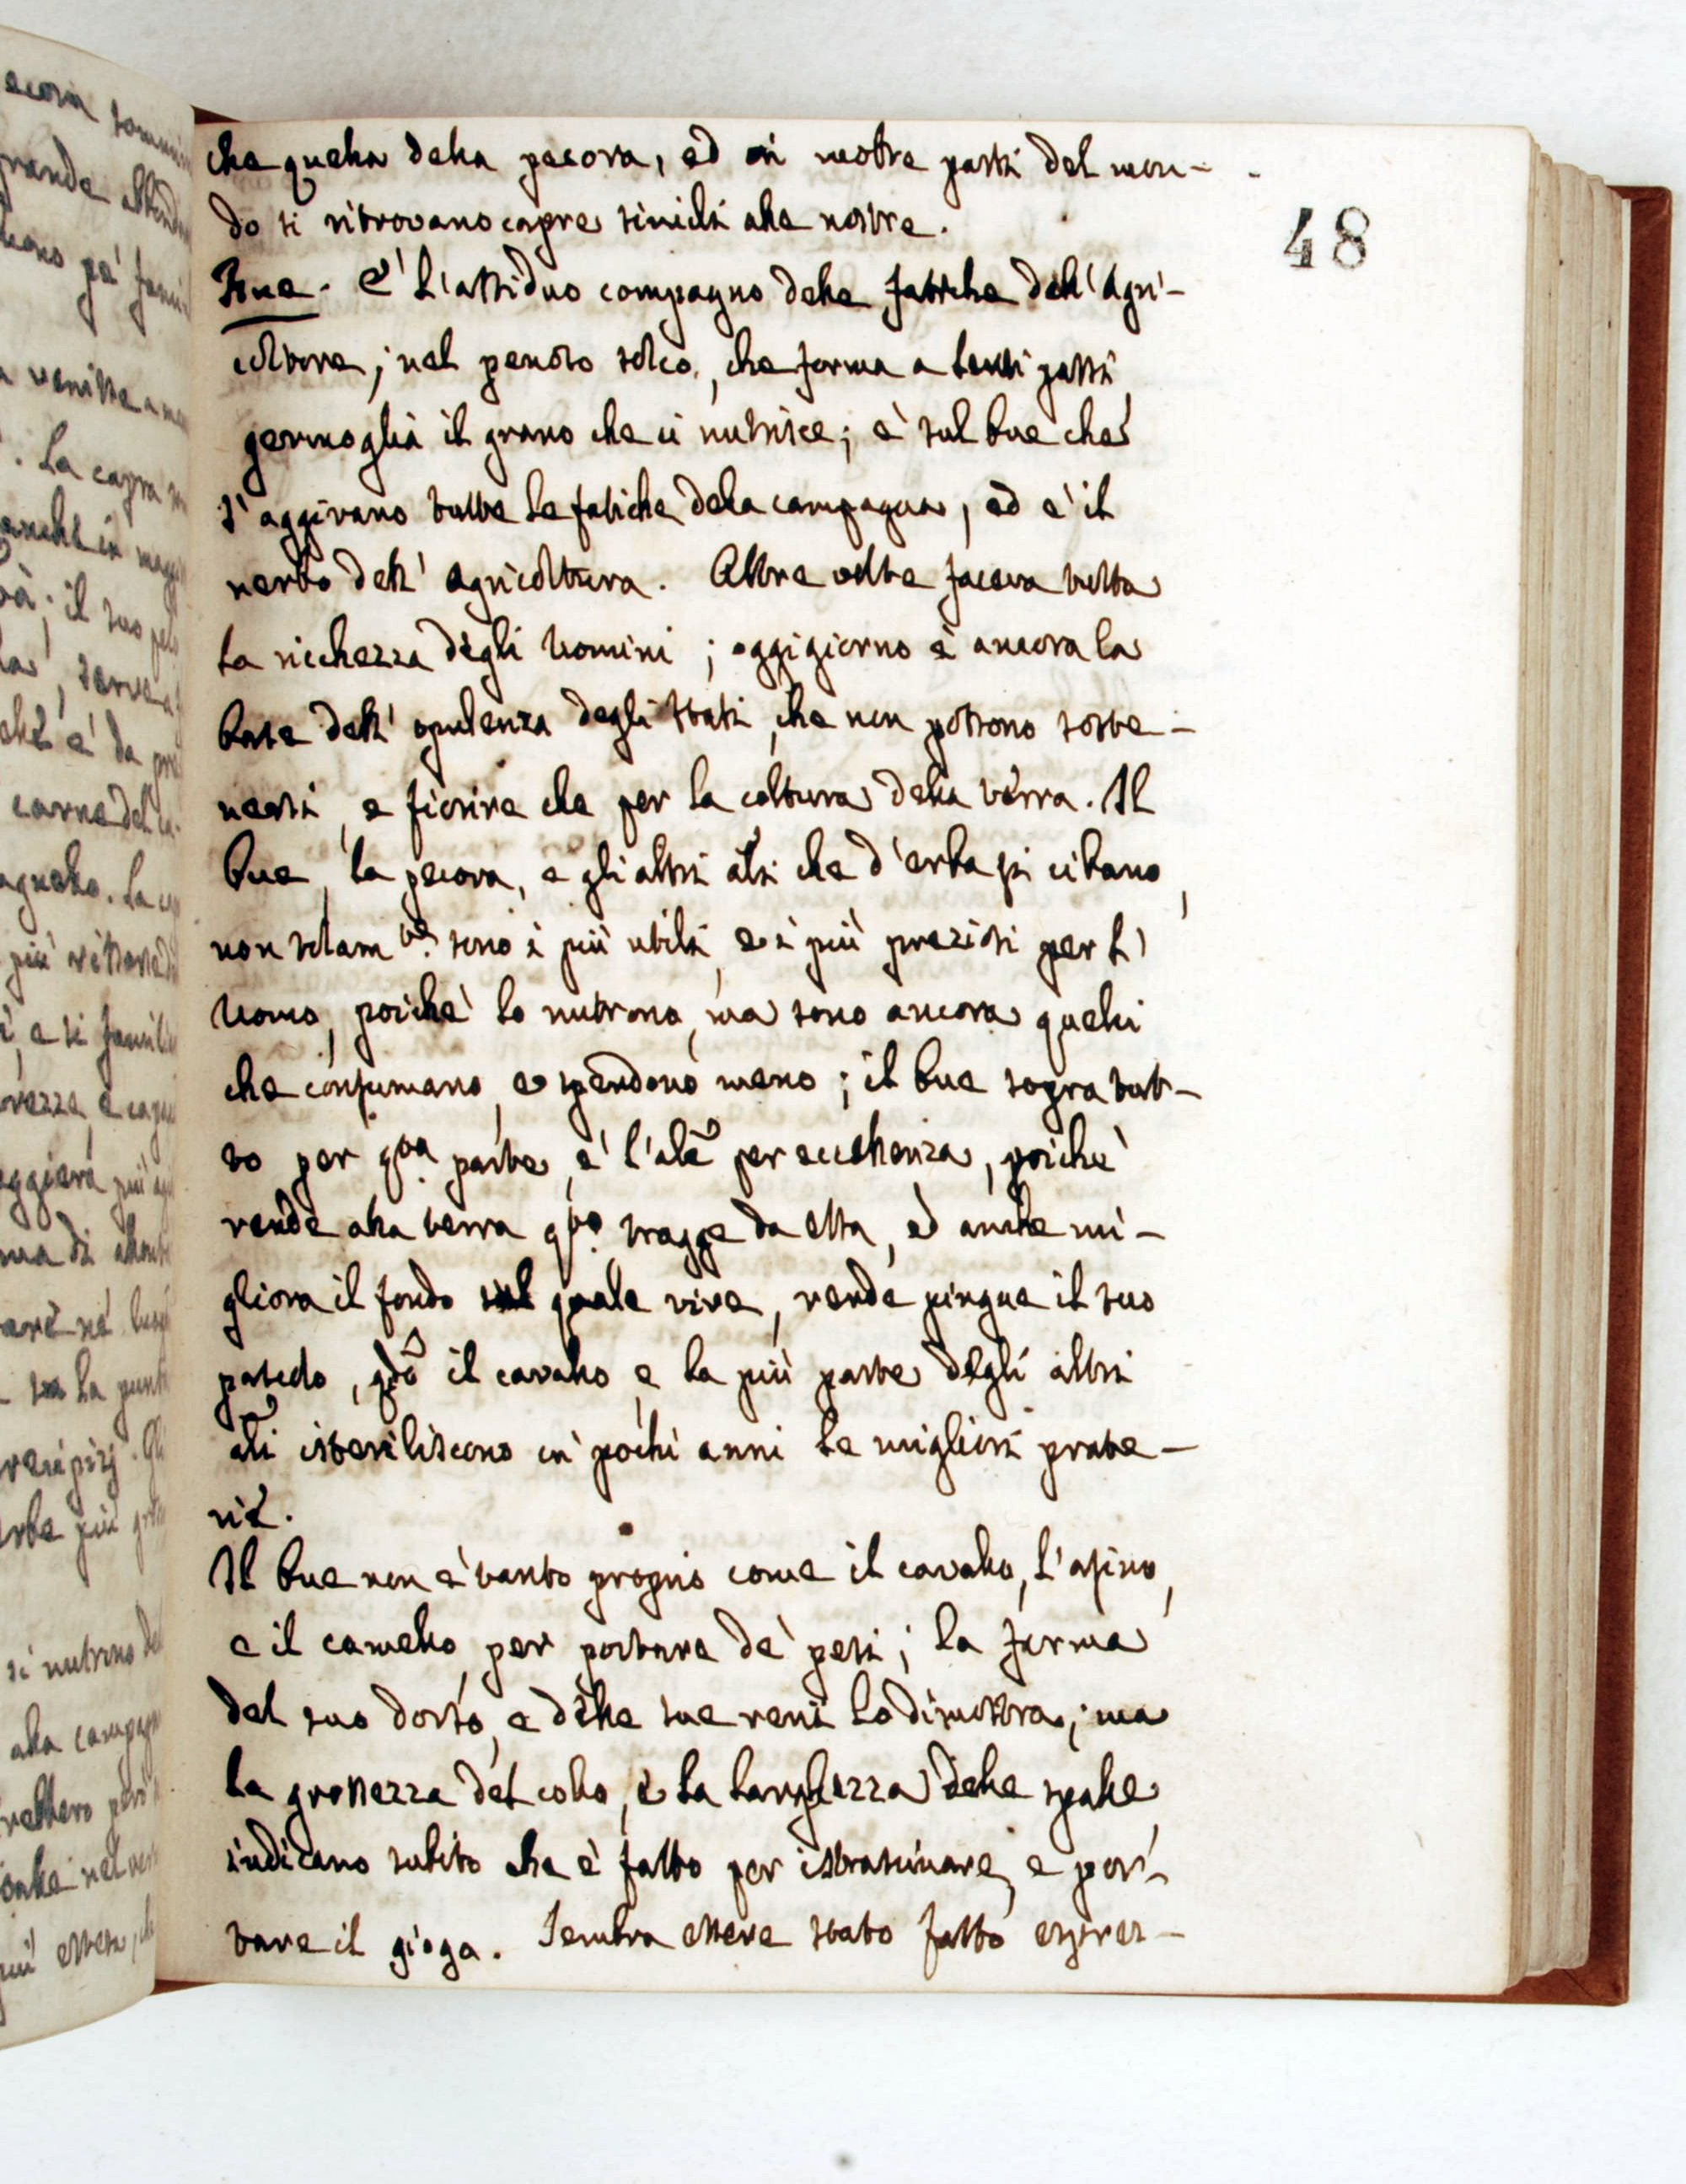 48
che quella della pecora, ed in molte parti del mon-
do si ritrovano capre simili alle nostre.
Bue. È l'assiduo compagno delle fatiche dell'Agri-
coltore; nel penoso solco, che forma a lenti passi
germoglia il grano che ci nutrisce; è sul bue che
s'aggirano tutte le fatiche dela campagna, ed è il
nerbo dell'agricoltura. Altre volte faceva tutta
la ricchezza degli Uomini; oggigiorno è ancora la
base dell'opulenza degli Stati, che non possono soste-
nersi, e fiorire che per la coltura della terra. Il
bue, la pecora, e gli altri ali che d'erba si cibano,
non solam.te sono i più utili, e i più preziosi per l'
Uomo, poiché lo nutrono, ma sono ancora quelli
che consumano, e spendono meno; il bue sopratut-
to per q.ta parte, è l'ale per eccellenza, poiché
rende alla terra q.to tragge da essa, ed anche mi-
gliora il fondo sul quale vive, rende pingue il suo
pascolo, qdo il cavallo e la più parte degli altri
ali isteriliscono in pochi anni le migliori prate-
rie.
Il bue non è tanto proprio come il cavallo, l'asino,
e il camello, per portare de' pesi; la forma
del suo dorso, e delle sue reni lo dimostra; ma
la grossezza del collo, e la larghezza delle spalle,
indicano subito che è fatto per istrascinare, e por-
tare il giogo. Sembra essere stato fatto espres-